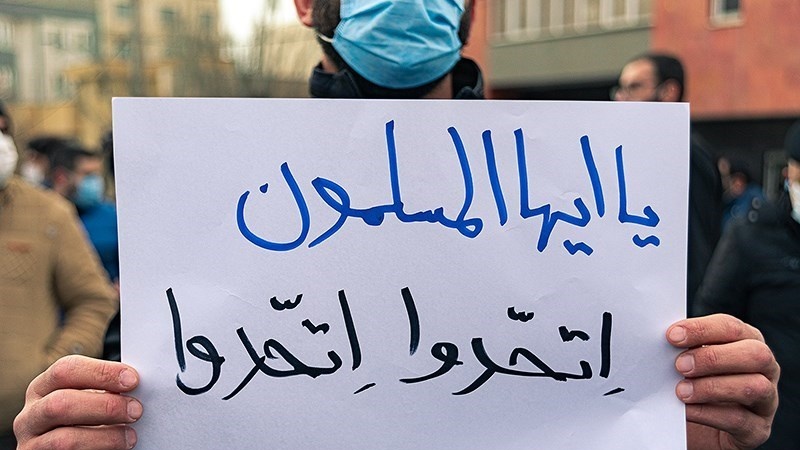 يا ايها المسلمون
اِتحّدوا اِتحّدوا